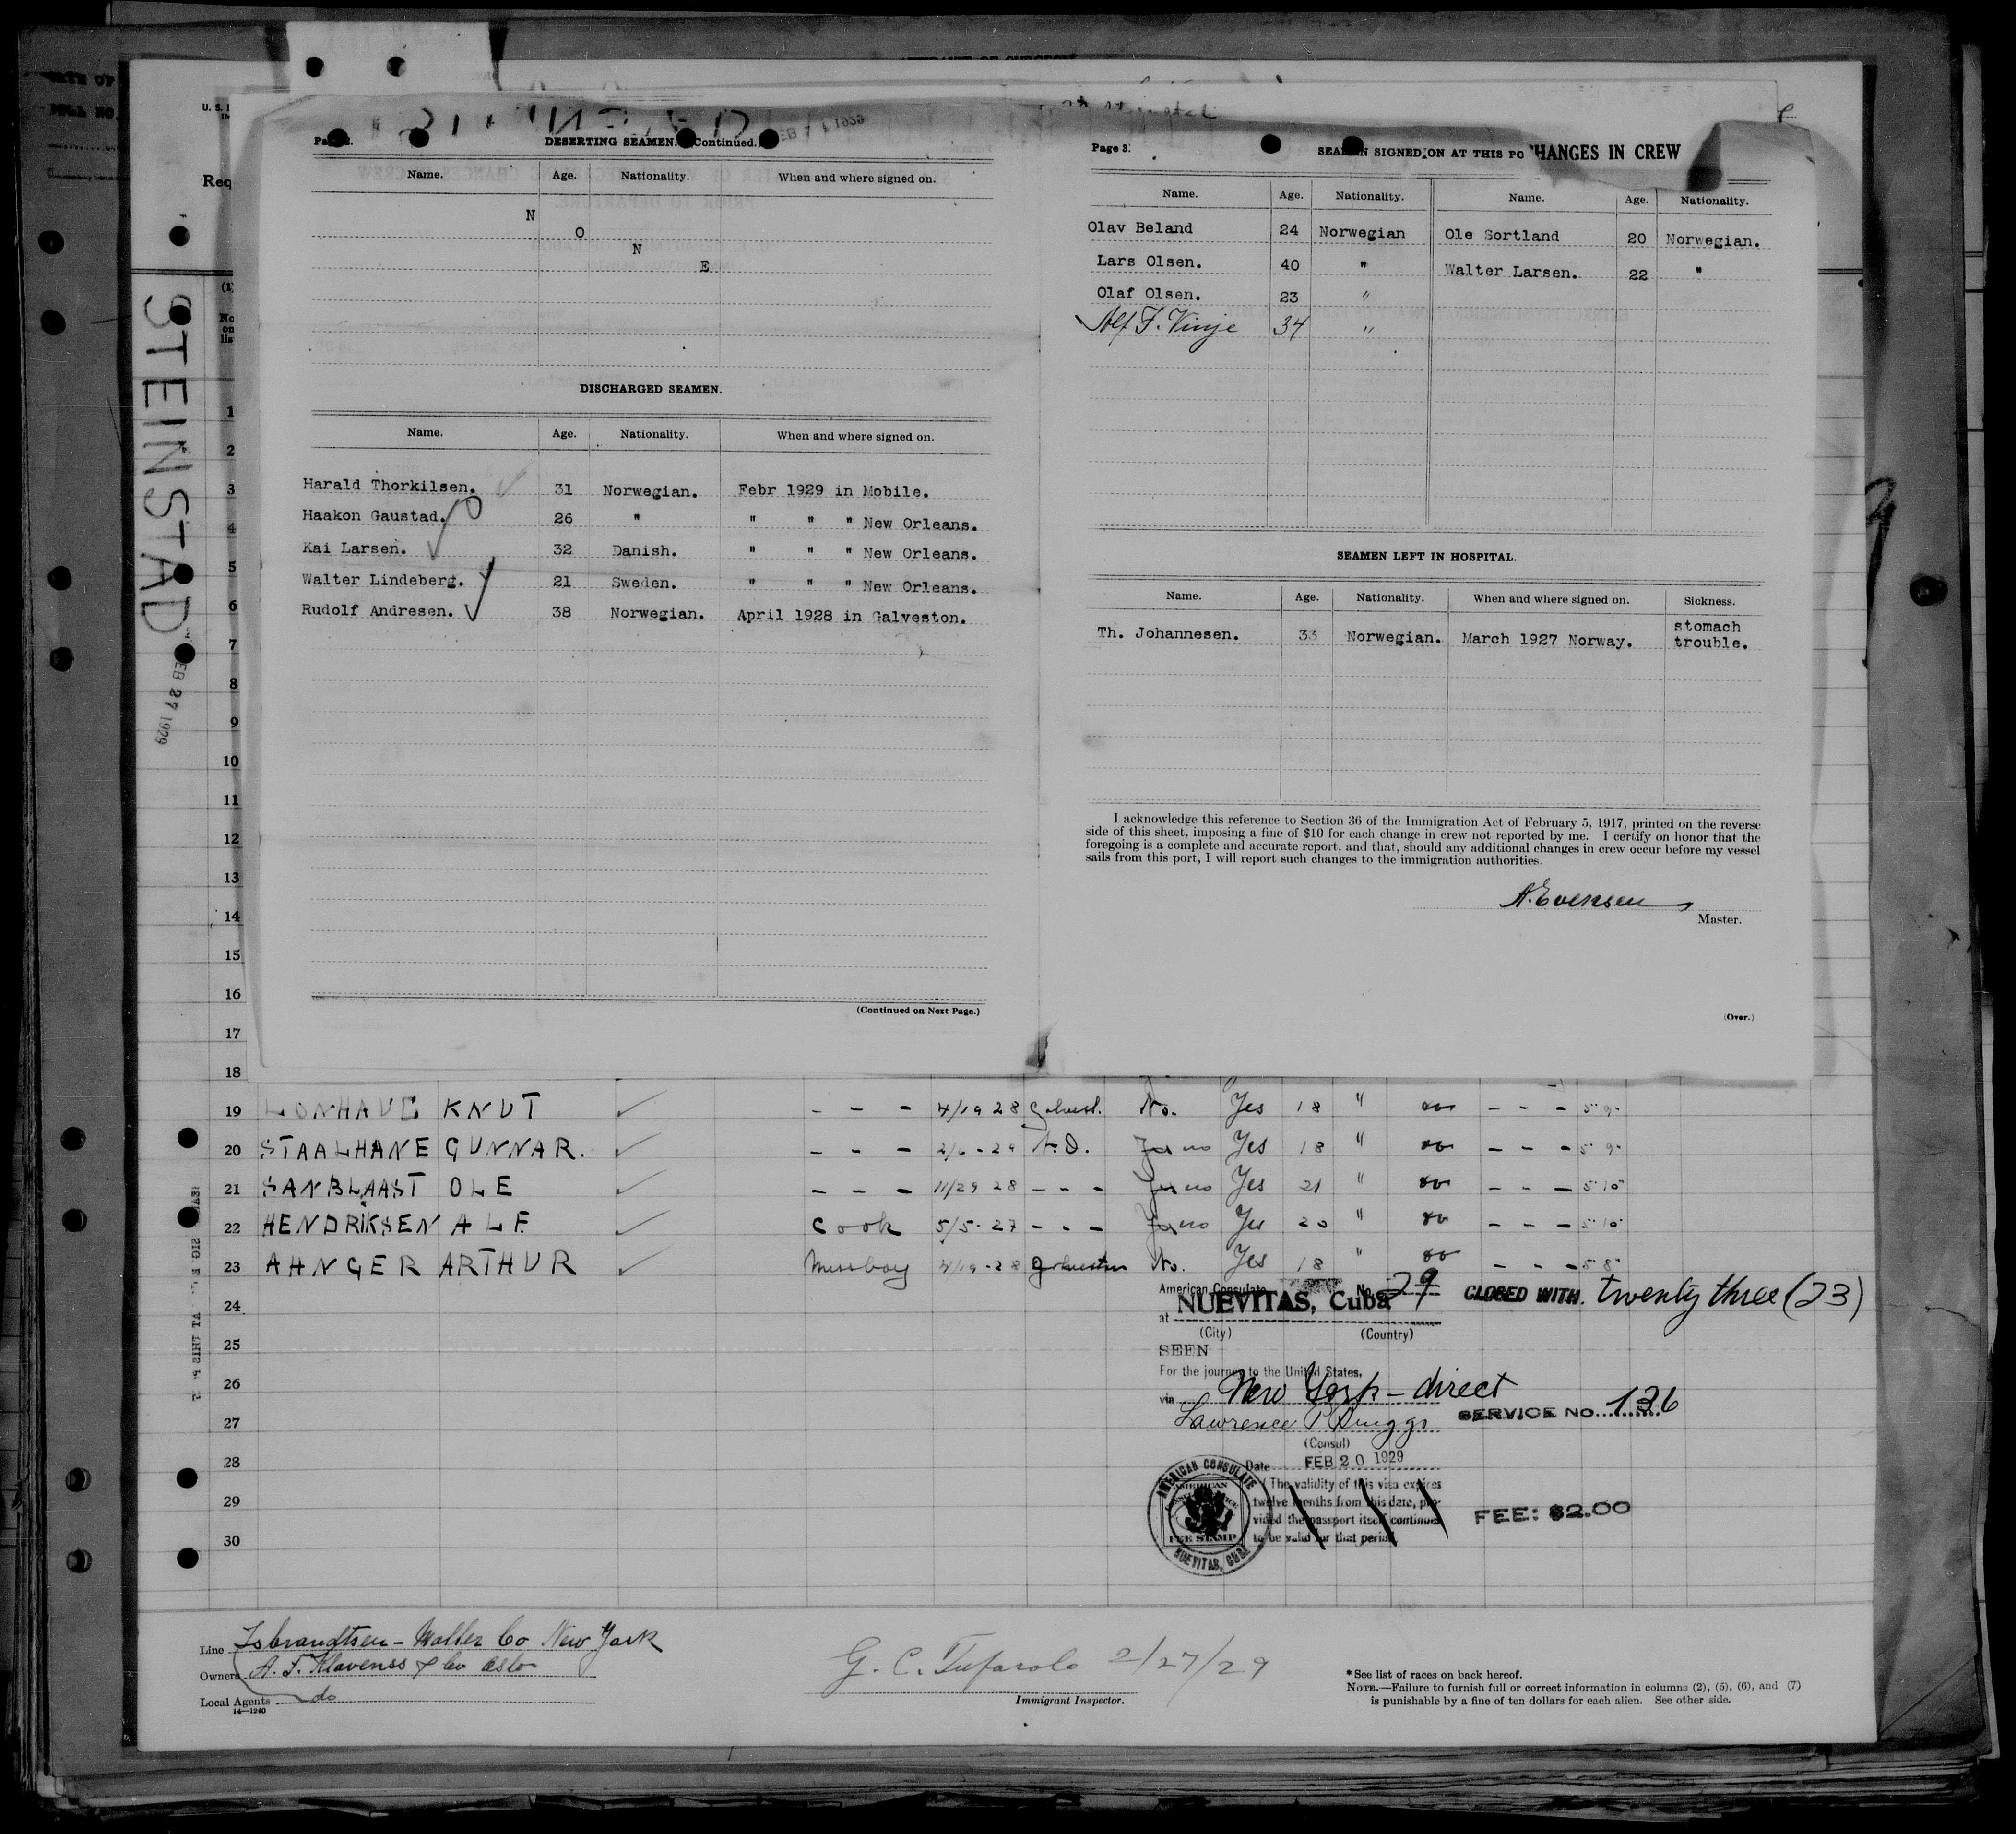 U. S.
Req
STEINSTAD
FEB 27 1929
Page 2.
DESERTING SEAMEN. (Continued.)
Name. Age. Nationality. When and where signed on.
N
O
N
E
DISCHARGED SEAMEN.
Name. Age. Nationality. When and where signed on.
Harald Thorkilsen. 31 Norwegian. Febr 1929 in Mobile.
Haakon Gaustad. 26 " " " " New Orleans.
Kai Larsen. 32 Danish. " " " New Orleans.
Walter Lindeberg. 21 Sweden. " " " New Orleans.
Rudolf Andresen. 38 Norwegian. April 1928 in Galveston.
(Continued on Next Page.)
Page 3.
SEAMEN SIGNED ON AT THIS PO
CHANGES IN CREW
Name. Age. Nationality. Name. Age. Nationality.
Olav Beland 24 Norwegian Ole Sortland 20 Norwegian.
Lars Olsen. 40 " Walter Larsen. 22 "
Olaf Olsen. 23 "
Alf F. Vinje 34 "
SEAMEN LEFT IN HOSPITAL.
Name. Age. Nationality. When and where signed on. Sickness.
Th. Johannesen. 33 Norwegian. March 1927 Norway. stomach trouble.
I acknowledge this reference to Section 36 of the Immigration Act of February 5, 1917, printed on the reverse
side of this sheet, imposing a fine of $10 for each change in crew not reported by me. I certify on honor that the
foregoing is a complete and accurate report, and that, should any additional changes in crew occur before my vessel
sails from this port, I will report such changes to the immigration authorities.
A. Evensen
Master.
(Over.)
(1)
No
on
lis
1
2
3
4
5
6
7
8
9
10
11
12
13
14
15
16
17
18
19 LONHAUG KNUT - - - 4/19 28 Galvest. No. Yes 18 " - - - 5 9
20 STAALHANE GUNNAR. - - - 2/6 - 29 N.O. no Yes 18 " - - - 5 9
21 SANBLAAST OLE - - - 11/29 28 - - - no Yes 21 " - - - 5 10
22 HENDRIKSEN ALF. Cook 5/5 - 27 - - - no Yes 20 " - - - 5 10
23 AHNGER ARTHUR Messboy 4/19 - 28 Galveston No. Yes 18 " - - - 5 8
24
25
26
27
28
29
30
American Consulate No. 29
at NUEVITAS, Cuba
(City) (Country)
CLOSED WITH. twenty three (23)
SEEN
For the journey to the United States,
via New York - direct
Lawrence P Briggs
(Consul)
SERVICE NO. 136
Date FEB 20 1929
(The validity of this visa expires
twelve months from this date, pro-
vided the passport itself continues
to be valid for that period.
FEE: $2.00
AMERICAN CONSULATE
AMERICAN
FEE STAMP
NUEVITAS, CUBA
Line Isbrandtsen - Moller Co New York
Owners A. F. Klaveness & Co Oslo
Local Agents do
14—1240
G. C. Tufarolo 2/27/29
Immigrant Inspector.
* See list of races on back hereof.
NOTE.—Failure to furnish full or correct information in columns (2), (5), (6), and (7)
is punishable by a fine of ten dollars for each alien. See other side.